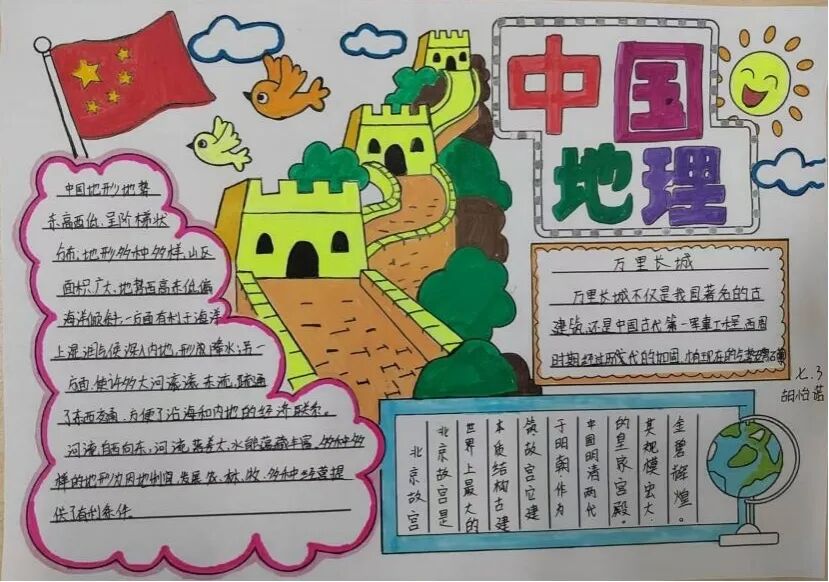 中国
地理
中国地形地势
东高西低、呈阶梯状
分布,地形多种多样,山区
面积广大、地势西高东低偏
海洋倾斜,一方面有利于海洋
上湿润气候深入内地,形成降水;另一
方面,使许多大河滚滚东流,疏通
了东西交通,方便了沿海和内地的经济联系。
河流自西向东,河流落差大,水能蕴藏丰富。多种多
样的地形为因地制宜发展农、林、牧、多种经营提
供了有利条件。
万里长城
万里长城不仅是我国著名的古
建筑,还是中国古代第一军事工程.西周
时期经过历代的加固,
七.3
胡怡诺
北京故宫
北京故宫是
世界上最大的
木质结构古建
筑故宫它建
于明朝.作为
中国明清两代
的皇家宫殿.
其规模宏大
金碧辉煌。